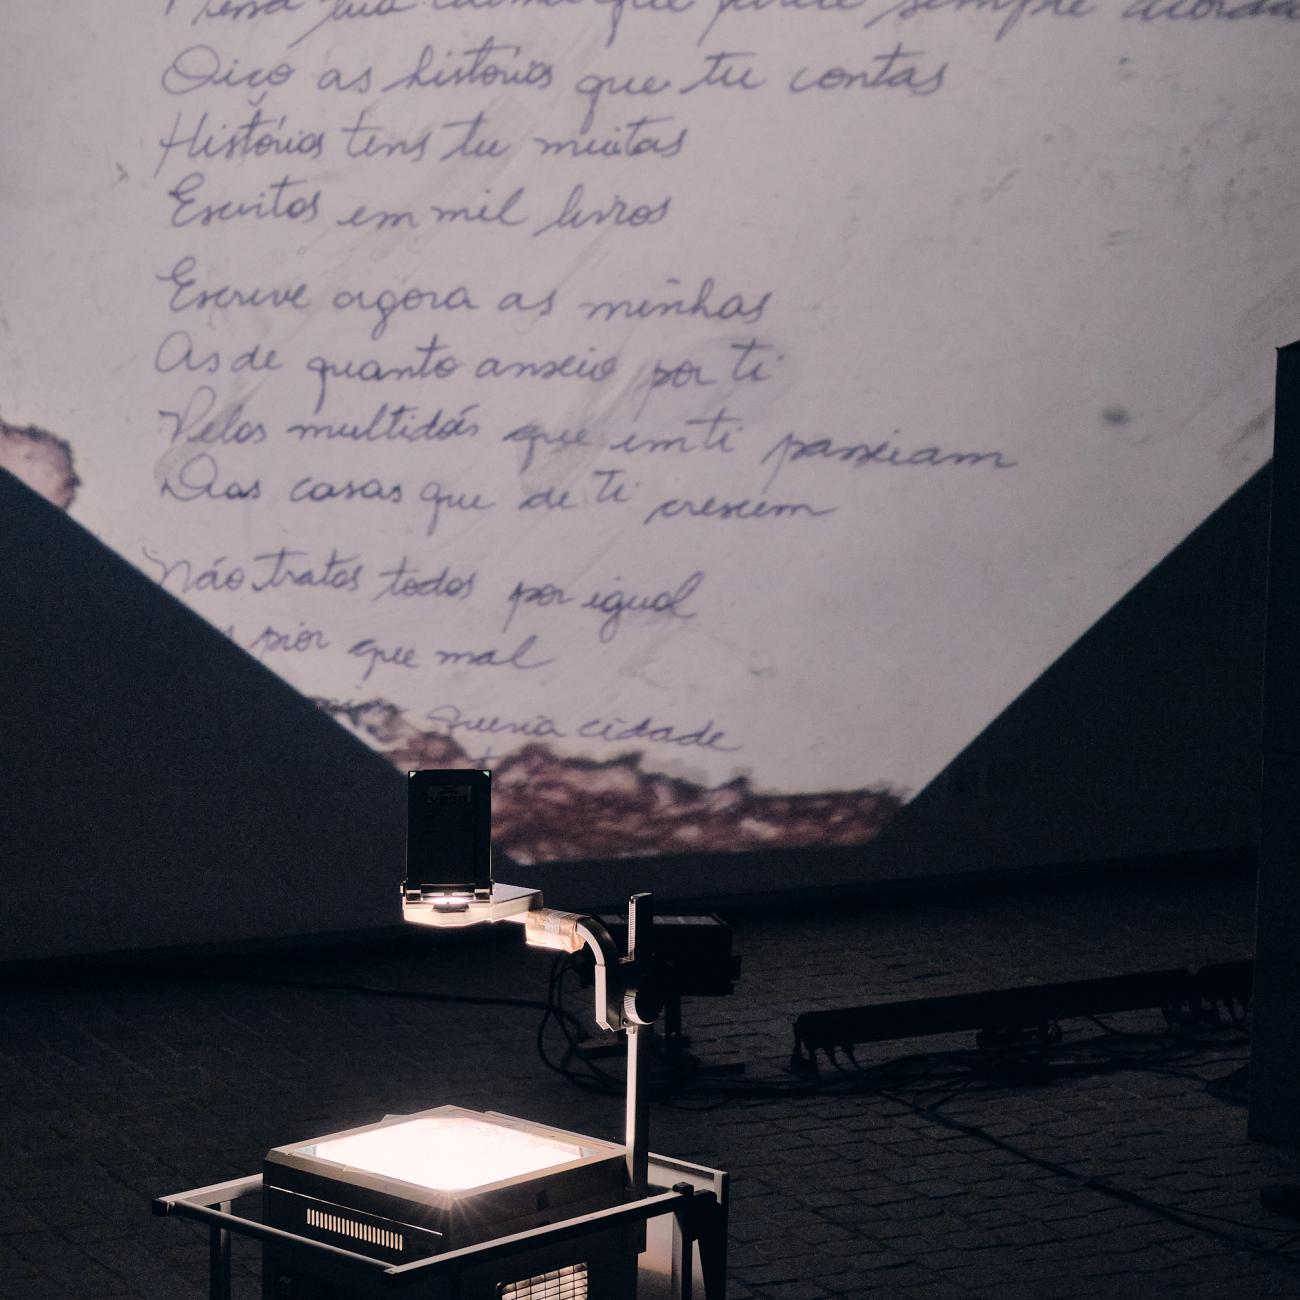 tua que parece sempre
Oiço as histórias que tu contas
Histórias tens tu muitas
Escritas em mil livros
Escreve agora as minhas
As de quanto anseio por ti
Pelas multidões que em ti passeiam
Das casas que de ti crescem
Não tratas todos por igual
pior que mal
Queria cidade